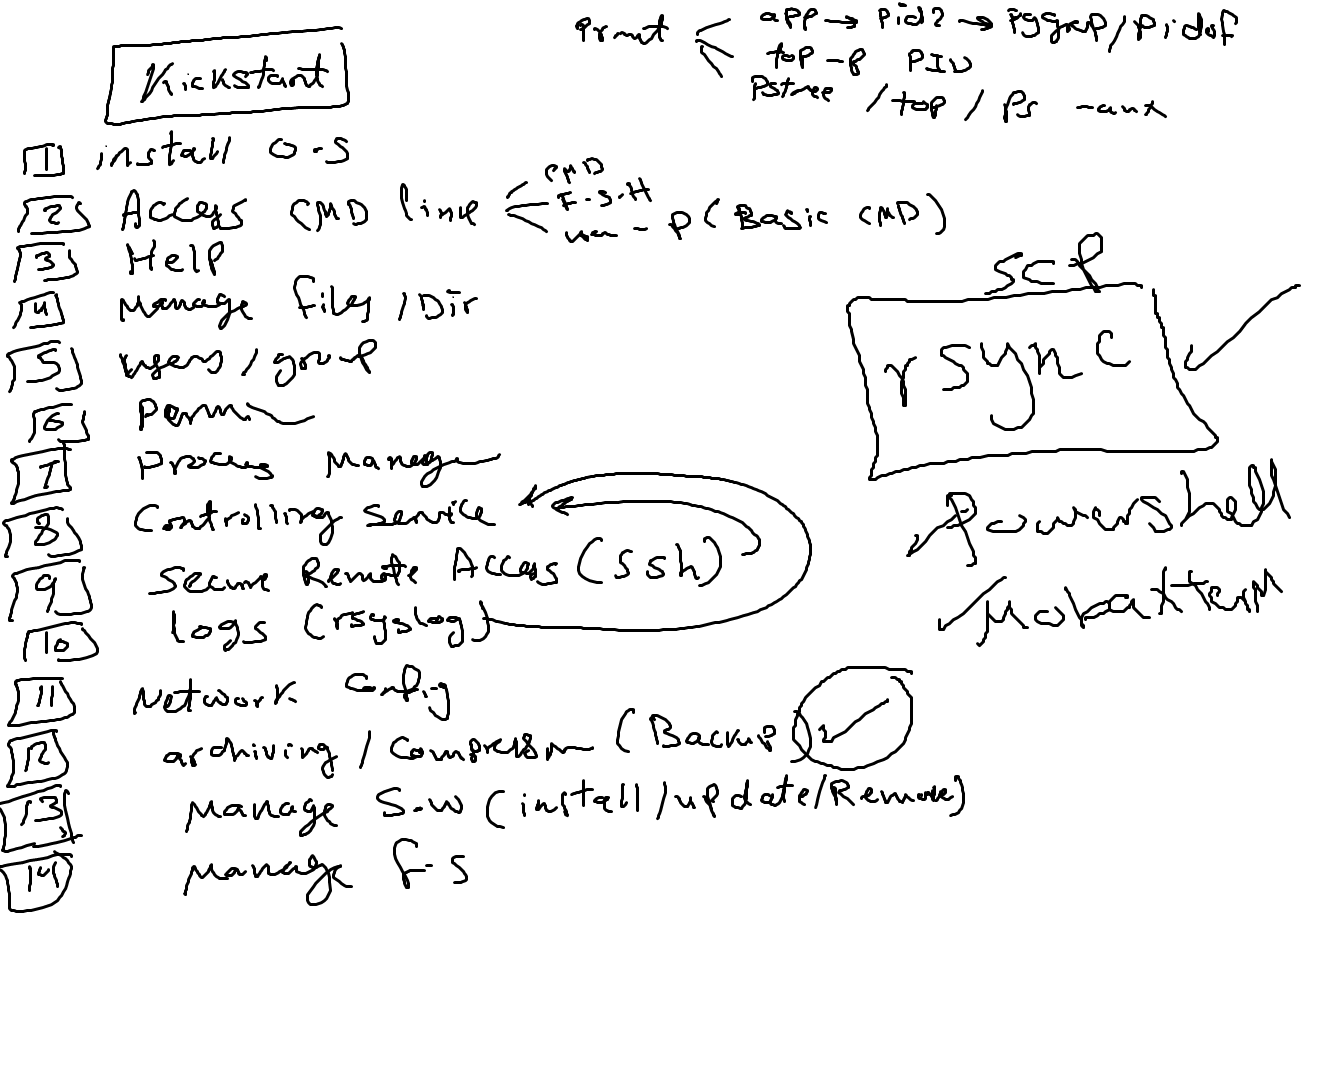 Kickstart
app → pid? → pggrep/pidof
top -p PID
Pstree / top / Ps -aux
1 install O.S
2 Access CMD line
CMD
F.S.H
- P (Basic CMD)
3 Help
4 Manage files / Dir
5 users / group
6 Perm
7 Process Manage
8 Controlling Service
9 Secure Remote Access (ssh)
10 logs (rsyslog)
11 Network Config
12 archiving / Compression (Backup)
13 Manage S.W (install/update/Remove)
14 Manage F.S
SCP
rsync
Powershell
MobaxterM